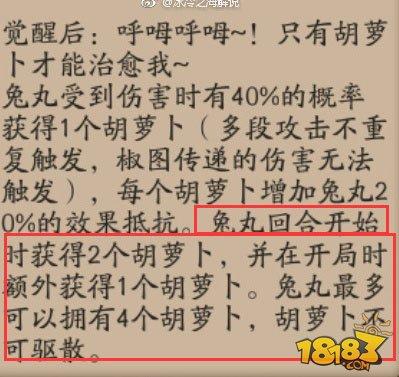 @冰冷之海解说
觉醒后：呼呣呼呣~！只有胡萝
卜才能治愈我~
兔丸受到伤害时有40%的概率
获得1个胡萝卜（多段攻击不重
复触发，椒图传递的伤害无法
触发），每个胡萝卜增加兔丸2
0%的效果抵抗。兔丸回合开始
时获得2个胡萝卜，并在开局时
额外获得1个胡萝卜。兔丸最多
可以拥有4个胡萝卜，胡萝卜不
可驱散。
18183